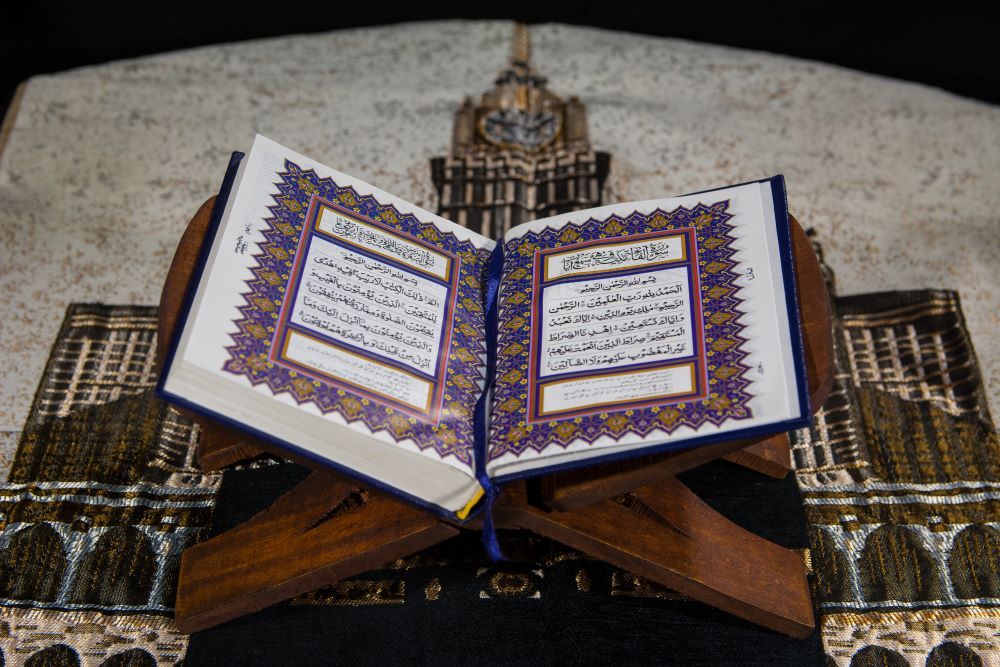 سُورَةُ الْفَاتِحَةِ مَكِّيَّةٌ وَهِيَ سَبْعُ آيَاتٍ
بِسْمِ اللهِ الرَّحْمٰنِ الرَّحِيْمِ
اَلْحَمْدُ لِلّٰهِ رَبِّ الْعٰلَمِيْنَ الرَّحْمٰنِ
الرَّحِيْمِ مٰلِكِ يَوْمِ الدِّيْنِ اِيَّاكَ نَعْبُدُ
وَاِيَّاكَ نَسْتَعِيْنُ اِهْدِنَا الصِّرَاطَ
الْمُسْتَقِيْمَ صِرَاطَ الَّذِيْنَ اَنْعَمْتَ عَلَيْهِمْ
غَيْرِ الْمَغْضُوْبِ عَلَيْهِمْ وَلَا الضَّالِّيْنَ
سُورَةُ الْبَقَرَةِ
بِسْمِ اللهِ الرَّحْمٰنِ الرَّحِيْمِ
الٓمّٓ ذٰلِكَ الْكِتٰبُ لَا رَيْبَ فِيْهِ هُدًى
لِّلْمُتَّقِيْنَ الَّذِيْنَ يُؤْمِنُوْنَ بِالْغَيْبِ وَ
يُقِيْمُوْنَ الصَّلٰوةَ وَمِمَّا رَزَقْنٰهُمْ يُنْفِقُوْنَ
وَالَّذِيْنَ يُؤْمِنُوْنَ بِمَا اُنْزِلَ اِلَيْكَ وَمَا
اُنْزِلَ مِنْ قَبْلِكَ وَبِالْاٰخِرَةِ هُمْ يُوْقِنُوْنَ